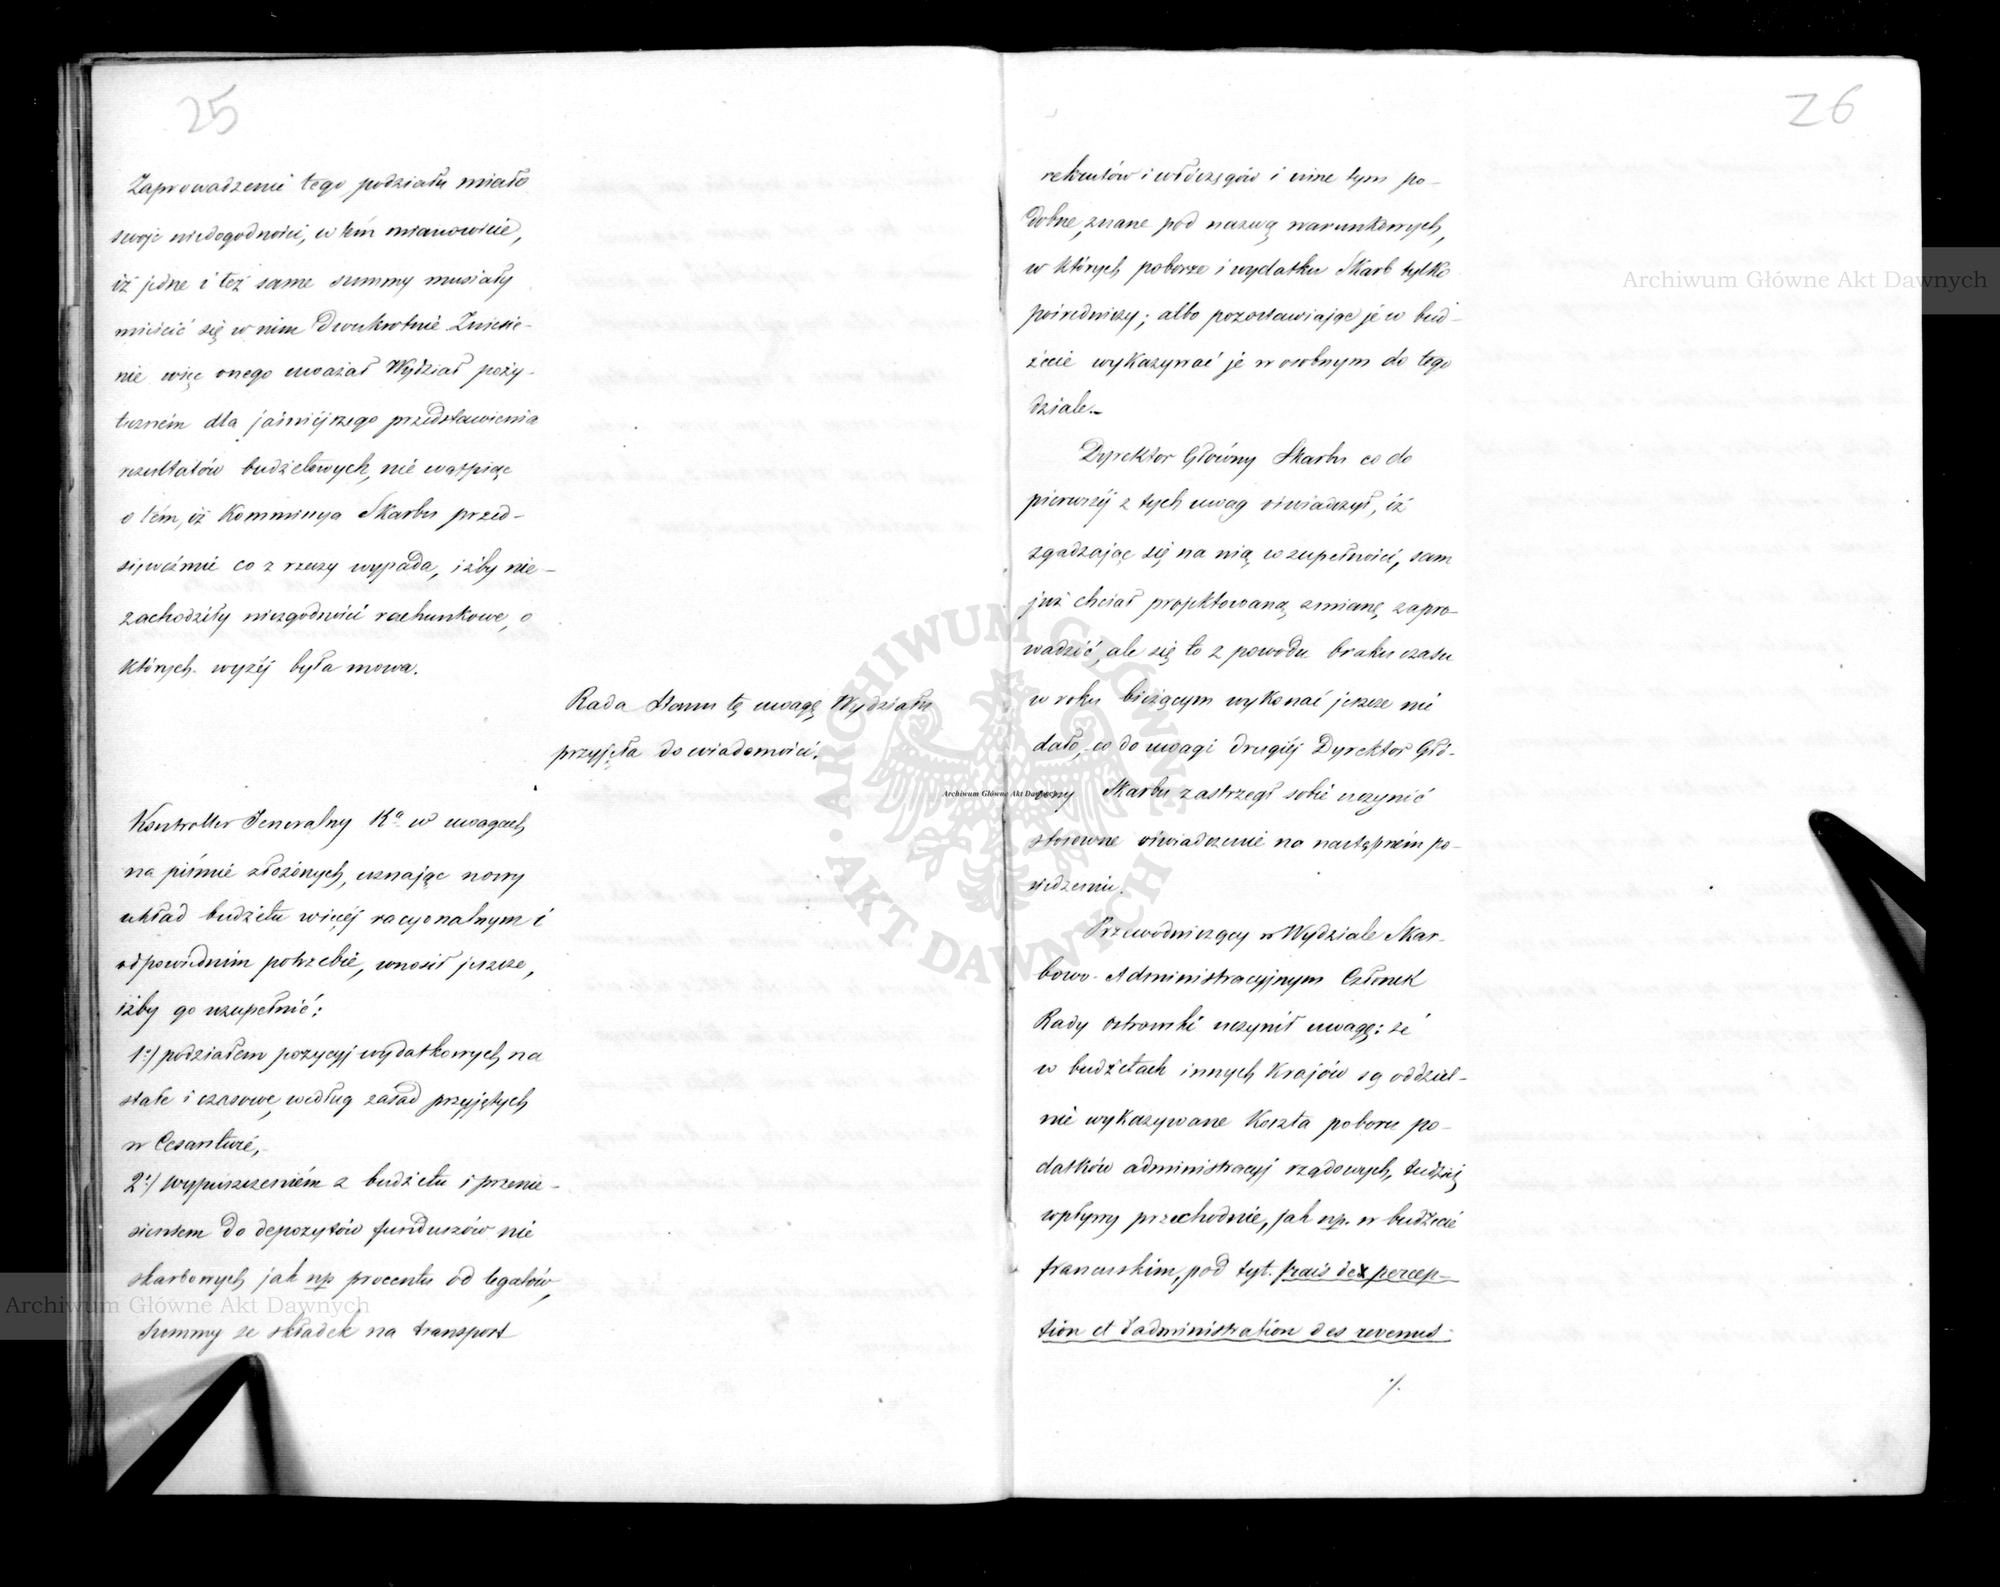 25
Zaprowadzenie tego podziału miało
swoje niedogodności, w tém mianowicie,
iż jedne i też same summy musiały
mieścić się w nim dwukrotnie. Zniesie-
nie więc onego uważał Wydział poży-
teczném dla jaśniejszego przedstawienia
rezultatów budżetowych, nie wątpiąc
o tém, iż Kommissya Skarbu przed-
sięweźmie co z rzeczy wypada, iżby nie-
zachodziły niezgodności rachunkowe, o
których wyżéj była mowa.
Rada Stanu tę uwagę Wydziału
przyjęła do wiadomości.
Kontroller Jeneralny Ka w uwagach
na piśmie złożonych, uznając nowy
układ budżetu więcéj racyonalnym i
odpowiednim potrzebie, wnosił jeszcze,
iżby go uzupełnić:
1o/ podziałem pozycyj wydatkowych na
stałe i czasowe, według zasad przyjętych
w Cesarstwie,
2o/ wypuszczeniém z budżetu i przenie-
sieniem do depozytów funduszów nie
skarbowych jak np procentu od legatów,
Summy ze składek na transport
26
rekrutów i włóczęgów i inne tym po-
dobne, znane pod nazwą warunkowych,
w których poborze i wydatku Skarb tylko
pośredniczy; albo pozostawiając je w bud-
żecie wykazywać je w osobnym do tego
dziale.
Dyrektor Główny Skarbu co do
pierwszéj z tych uwag oświadczył, iż
zgadzając się na nią w zupełności, sam
już chciał projektowaną zmianę zapro-
wadzić, ale się to z powodu braku czasu
w roku bieżącym wykonać jeszcze nie
dało, co do uwagi drugiéj Dyrektor Głó-
wny Skarbu zastrzegł sobie uczynić
stosowne oświadczenie na następném po-
siedzeniu.
Przewodniczący w Wydziale Skar-
bowo-Administracyjnym Członek
Rady Ostrowski uczynił uwagę: że
w budżetach innych Krajów są oddziel-
nie wykazywane Koszta poboru po-
datków administracyj rządowych, tudzież
wpływy przechodnie, jak np. w budżecie
francuskim, pod tyt. frais de percep-
tion et d'administration des revenus.
./.
Archiwum Główne Akt Dawnych
Archiwum Główne Akt Dawnych
Archiwum Główne Akt Dawnych
ARCHIWUM GŁÓWNE AKT DAWNYCH